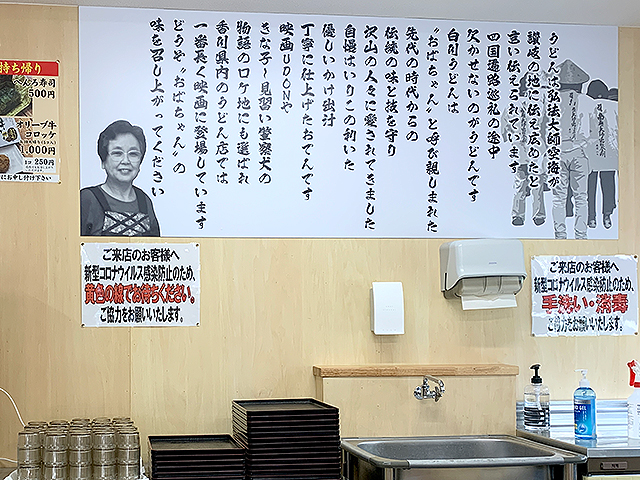 うどんは弘法大師空海が
讃岐の地に伝え広めたと
言い伝えられています
四国遍路巡礼の途中
欠かせないのがうどんです
白川うどんは
"おばちゃん"と呼び親しまれた
先代の時代からの
伝統の味と技を守り
沢山の人々に愛されてきました
自慢はいりこの利いた
優しいかけ出汁
丁寧に仕上げたおでんです
映画UDONや
きな子〜見習い警察犬の
物語のロケ地にも選ばれ
香川県内のうどん店では
一番長く映画に登場しています
どうぞ"おばちゃん"の
味を召し上がってください
持ち帰り
500円
オリーブ牛
コロッケ
1コ 250円
にお申し付け下さい
ご来店のお客様へ
新型コロナウイルス感染防止のため、
黄色の線でお待ちください。
ご協力をお願いいたします。
ご来店のお客様へ
新型コロナウイルス感染防止のため、
手洗い・消毒
ご協力をお願いいたします。
GEL